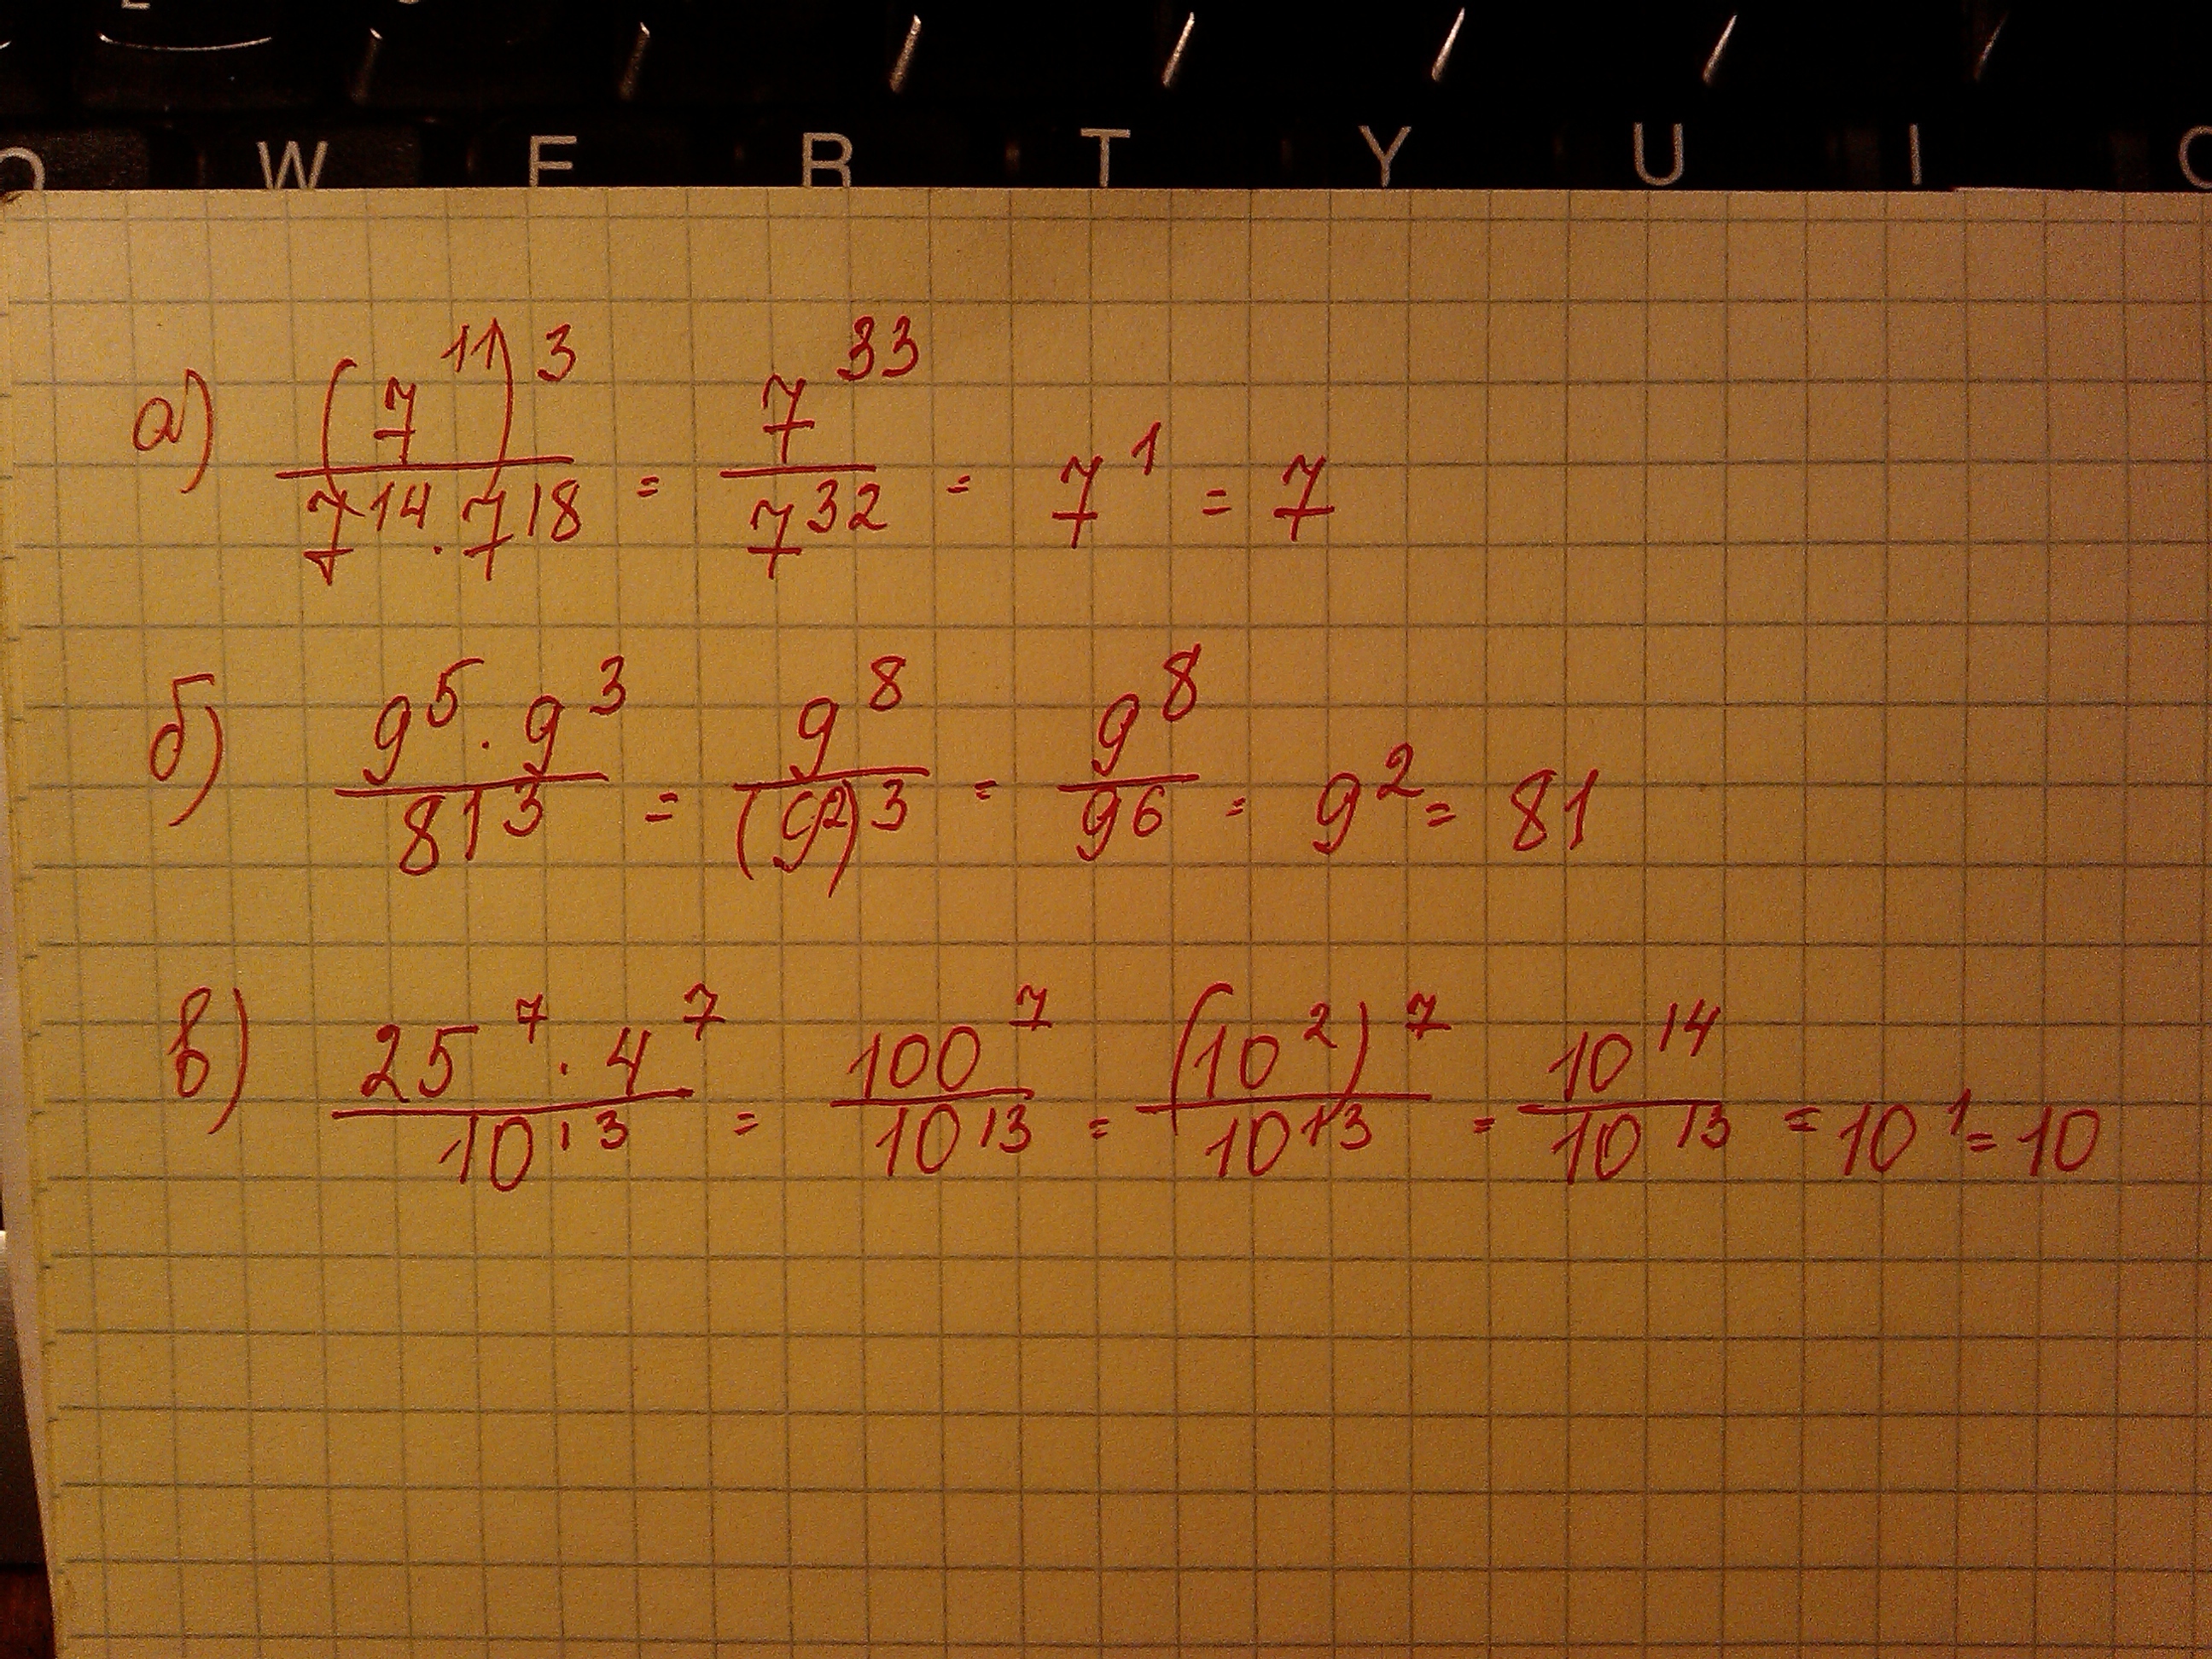 W E R T Y U I
а) (7^11)^3 / 7^14 · 7^18 = 7^33 / 7^32 = 7^1 = 7
б) 9^5 · 9^3 / 81^3 = 9^8 / (9^2)^3 = 9^8 / 9^6 = 9^2 = 81
в) 25^7 · 4^7 / 10^13 = 100^7 / 10^13 = (10^2)^7 / 10^13 = 10^14 / 10^13 = 10^1 = 10